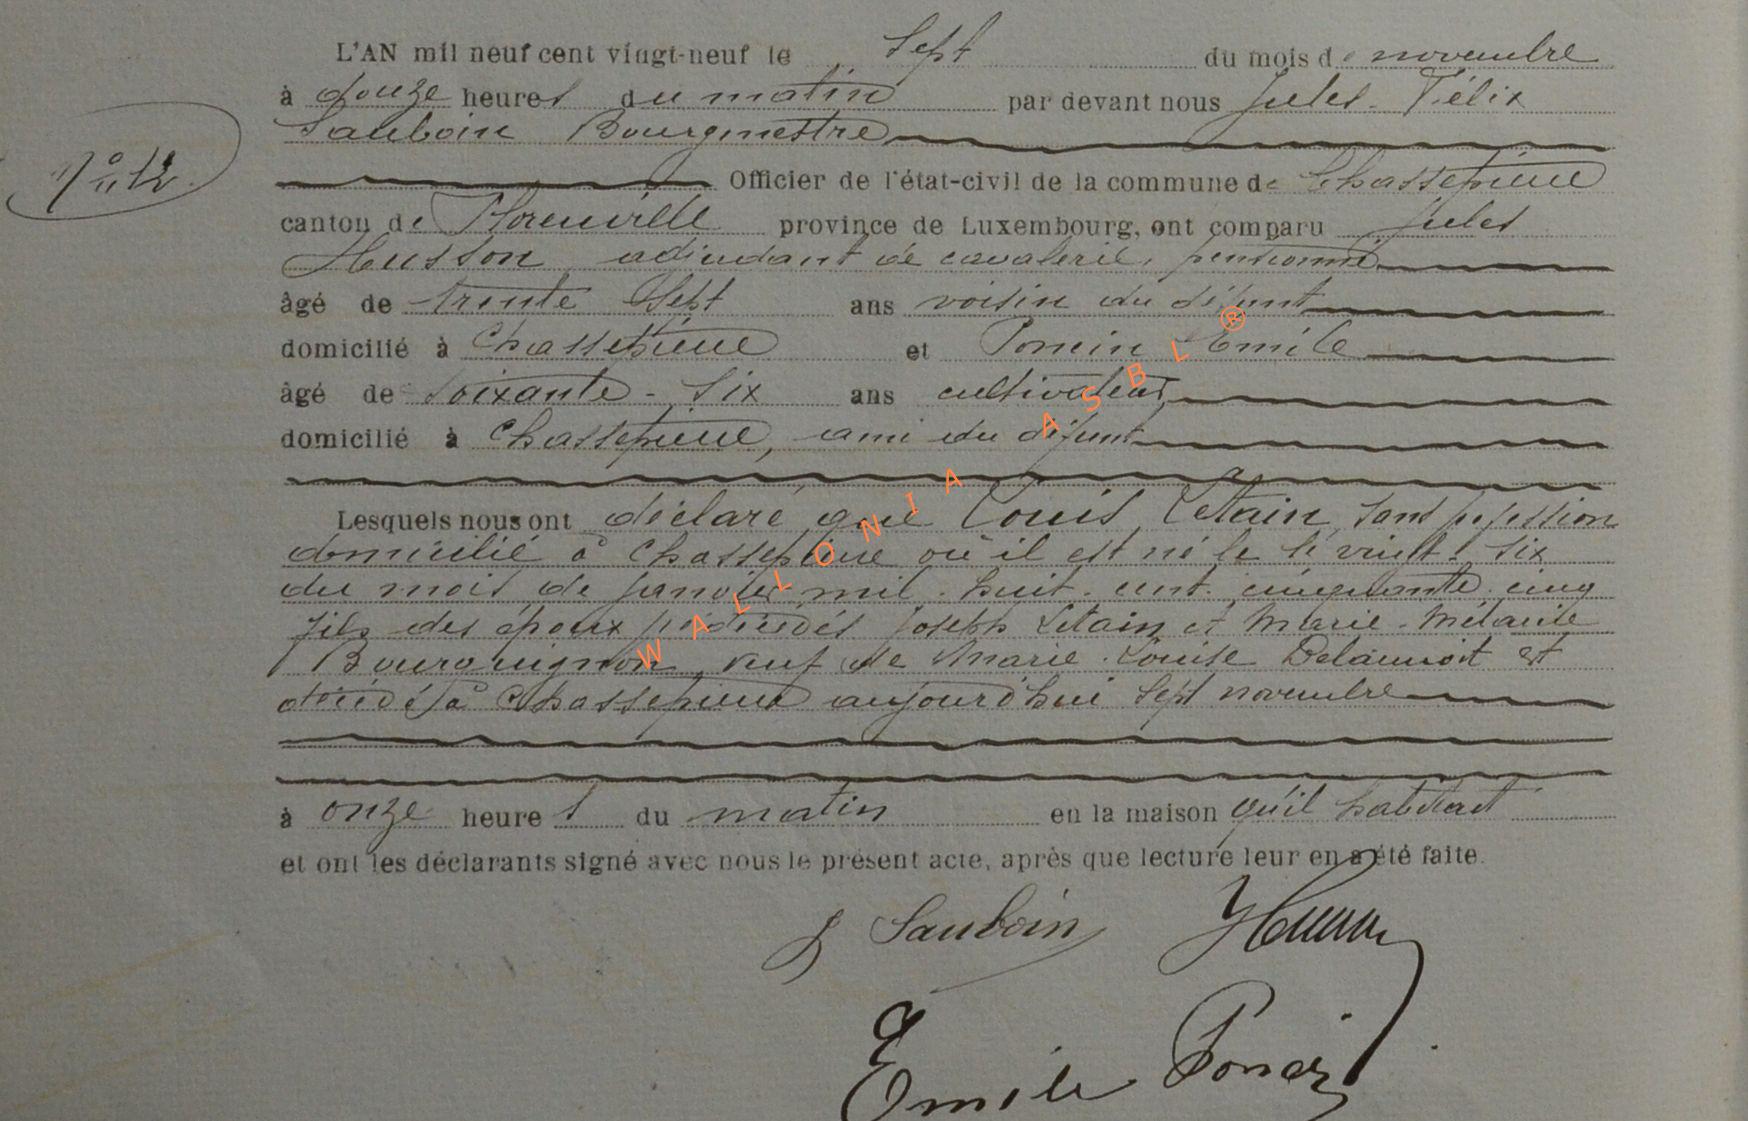 L'AN mil neuf cent vingt-neuf le sept du mois de novembre
à douze heures du matin par devant nous Jules-Félix
Sauboin Bourgmestre
N° 12.
Officier de l'état-civil de la commune de Chassepierre
canton de Florenville province de Luxembourg, ont comparu Jules
Husson, adjudant de cavalerie, pensionné
âgé de trente sept ans voisin du défunt
domicilié à Chassepierre et Poncin Emile
âgé de soixante-six ans cultivateur
domicilié à Chassepierre, ami du défunt
Lesquels nous ont déclaré que Louis Létain, sans profession
domicilié à Chassepierre où il est né le vingt-six
du mois de janvier mil-huit-cent-cinquante-cinq
fils des époux prédécédés Joseph Létain et Marie-Mélanie
Bourguignon, veuf de Marie-Louise Delaunoit est
décédé à Chassepierre aujourd'hui sept novembre
à onze heures du matin en la maison qu'il habitait
et ont les déclarants signé avec nous le présent acte, après que lecture leur en a été faite.
J Sauboin JHusson
Emile Poncin
WALLONIA ASBL ®